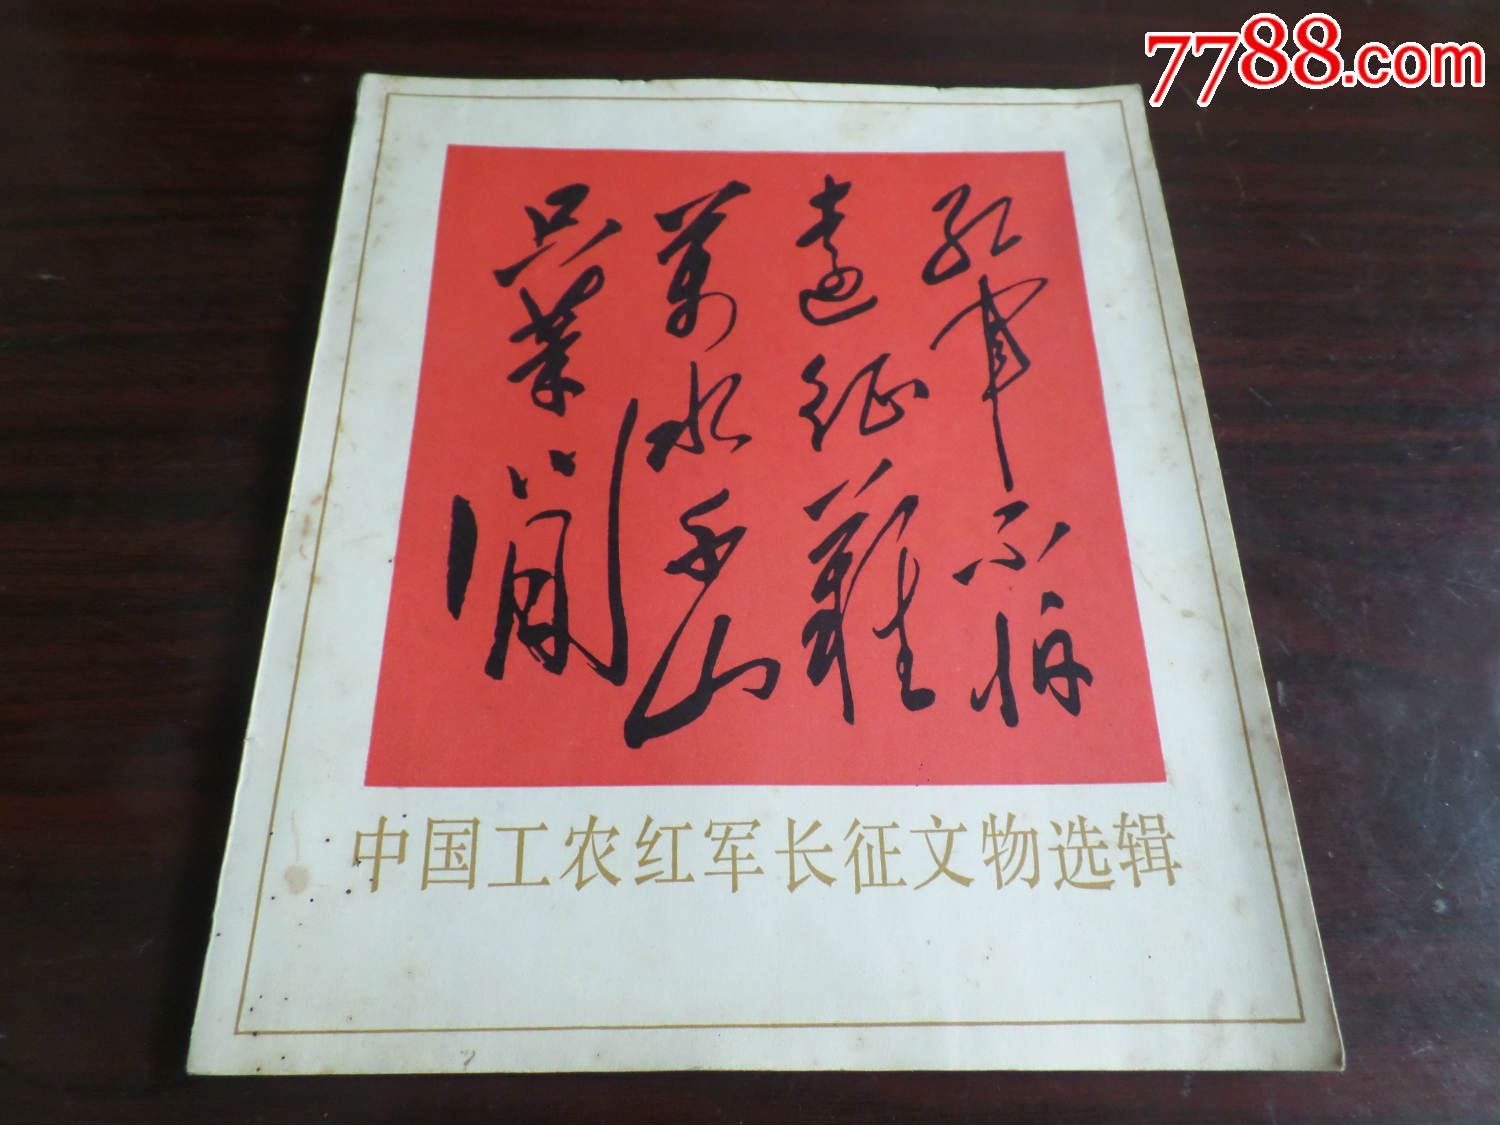 7788.com
红军不怕
远征難
萬水千山
只等闲
中国工农红军长征文物选辑